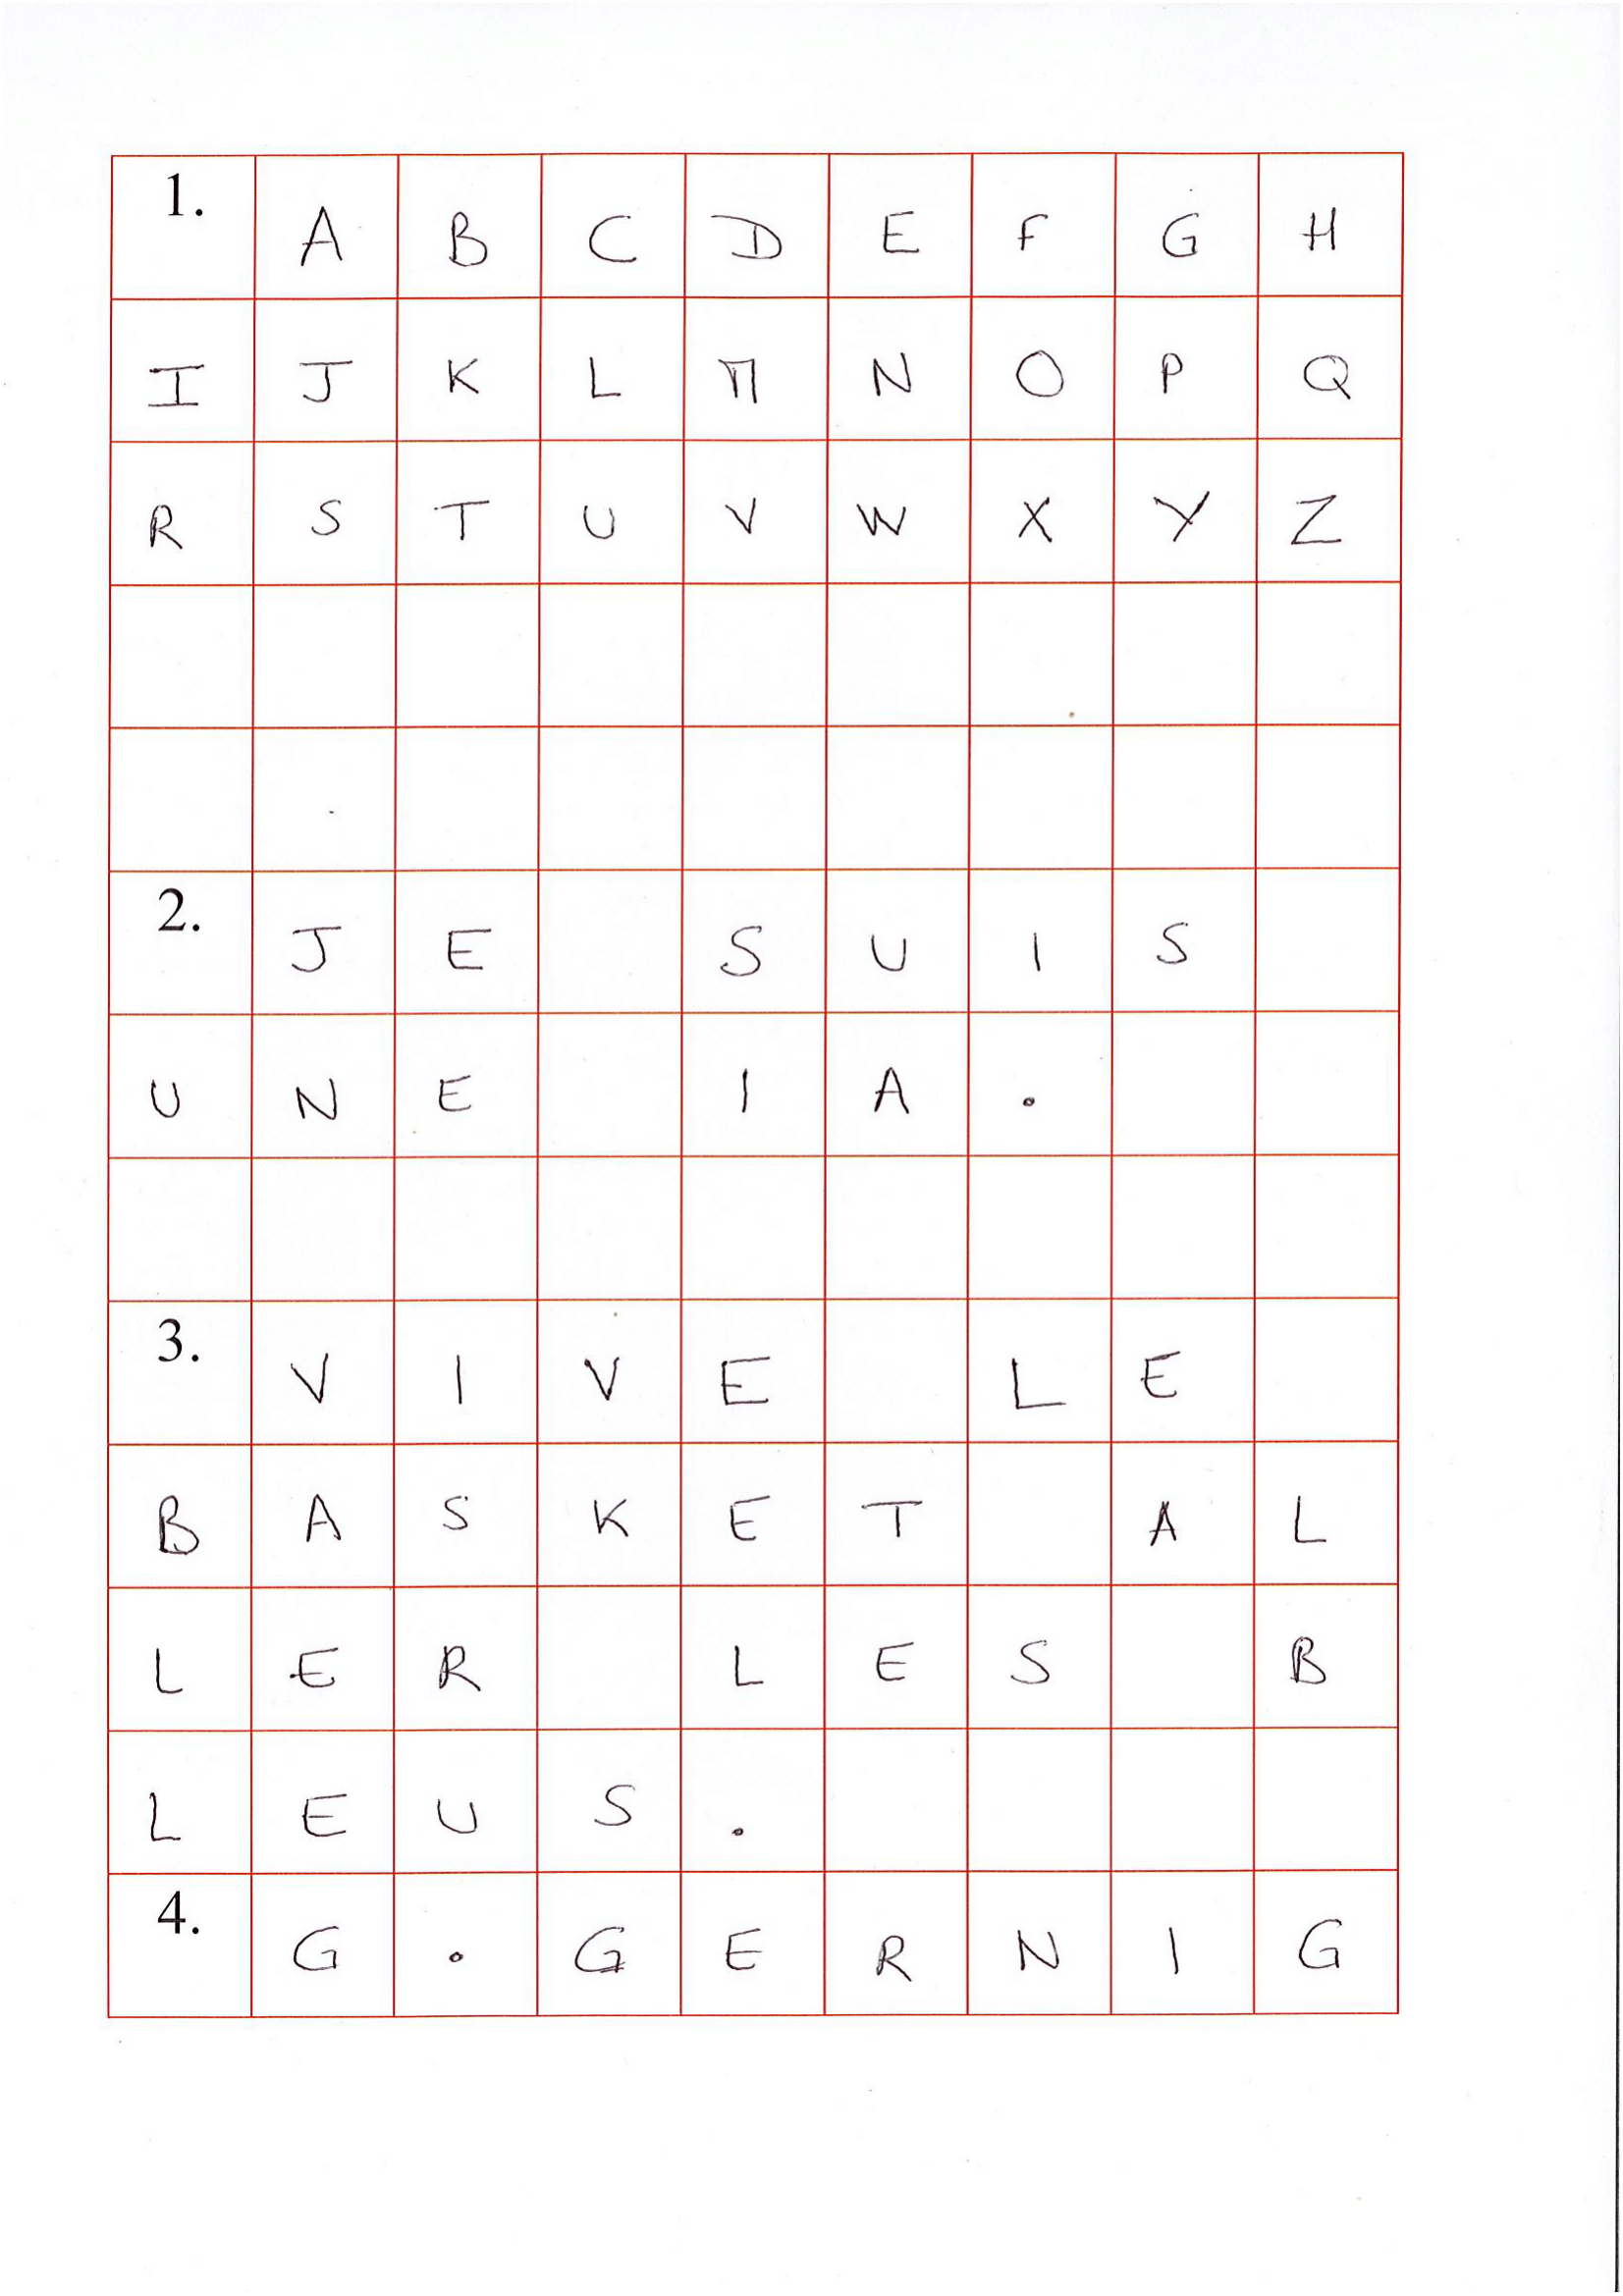 1. A B C D E F G H
I J K L M N O P Q
R S T U V W X Y Z
2. J E   S U I S
U N E   I A .
3. V I V E   L E
B A S K E T   A L
L E R   L E S   B
L E U S .
4. G . G E R N I G